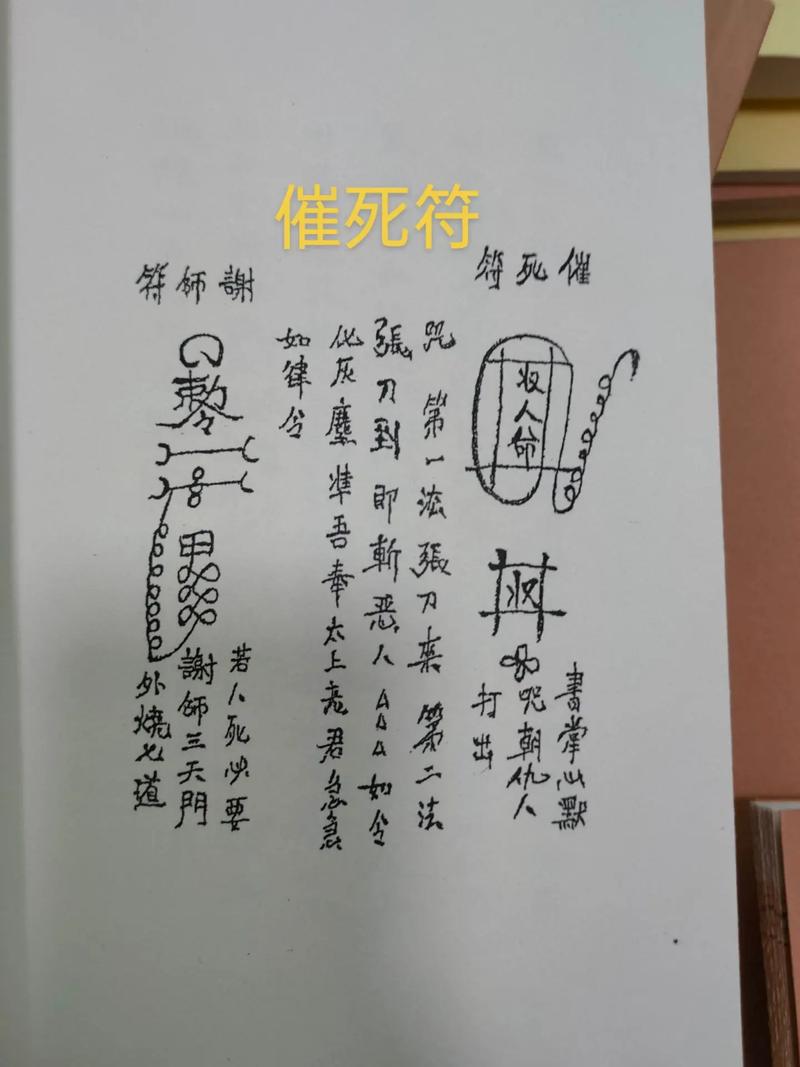 催死符
催死符
收人命
收
書掌心默
咒朝仇人
打出
咒 第一法張刀來 第二法
張刀到 即斬惡人△△△如令
化灰塵準吾奉太上老君急急
如律令
謝師符
敕令
若人死必要
謝師三天門
外燒七道